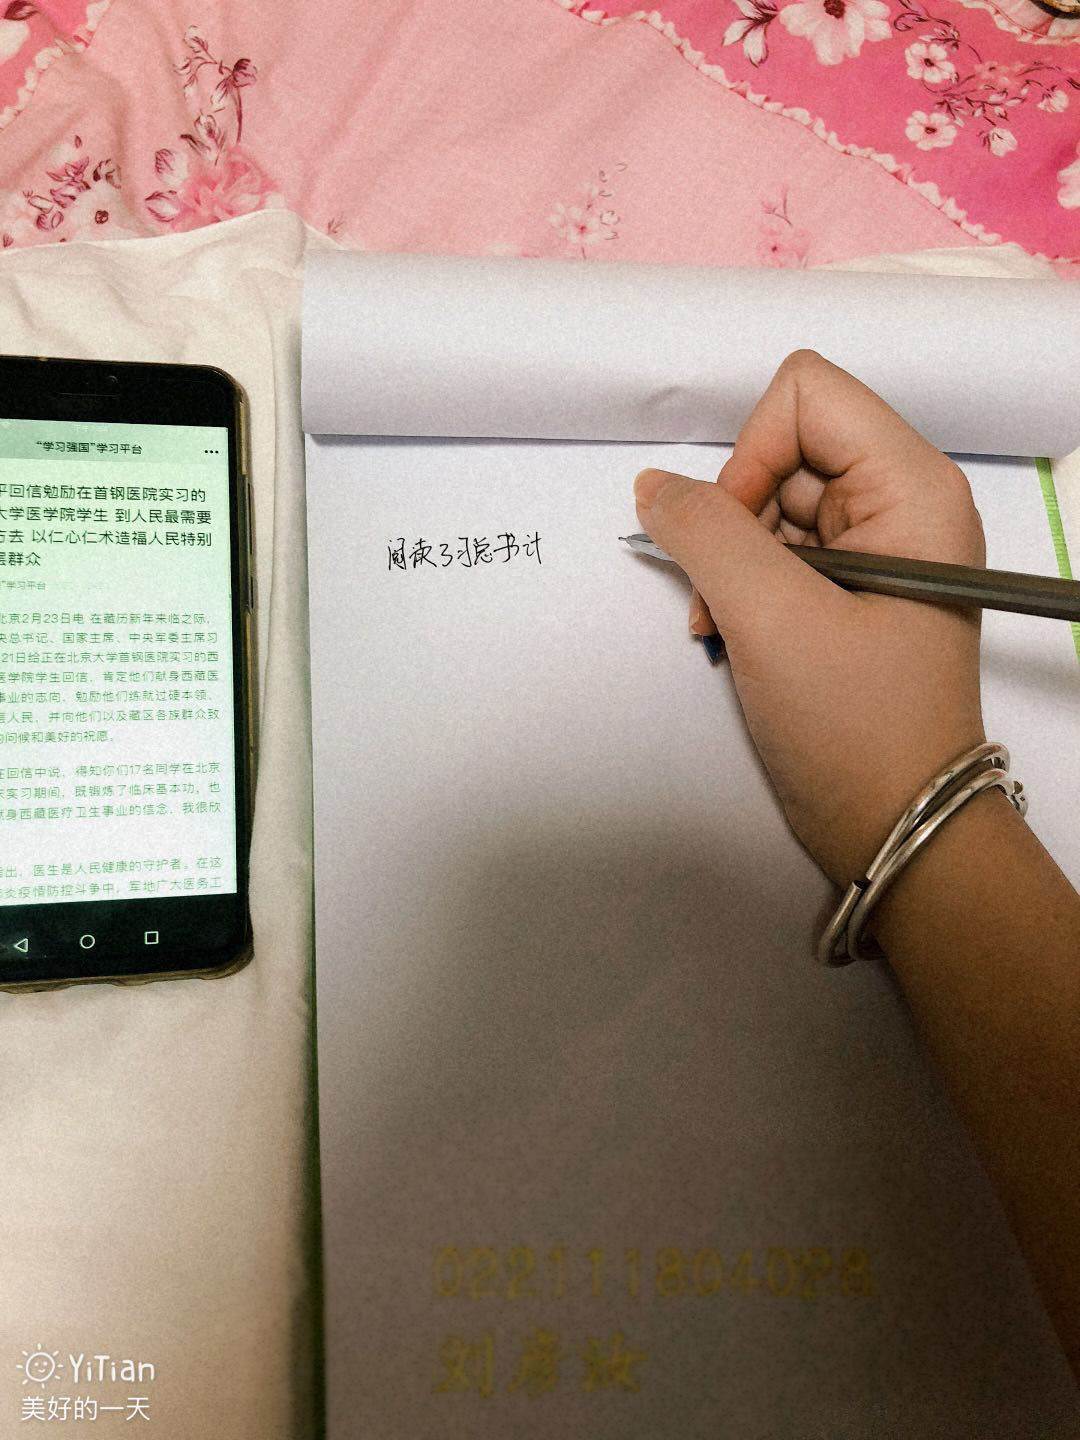 "学习强国"学习平台
平回信勉励在首钢医院实习的
大学医学院学生 到人民最需要
方去 以仁心仁术造福人民特别
层群众
"学习平台
北京2月23日电 在藏历新年来临之际,
央总书记、国家主席、中央军委主席习
21日给正在北京大学首钢医院实习的西
医学院学生回信,肯定他们献身西藏医
事业的志向,勉励他们练就过硬本领、
层人民,并向他们以及藏区各族群众致
的问候和美好的祝愿。
在回信中说,得知你们17名同学在北京
床实习期间,既锻炼了临床基本功,也
献身西藏医疗卫生事业的信念,我很欣
指出,医生是人民健康的守护者。在这
肺炎疫情防控斗争中,军地广大医务工
阅读了习总书计
022111804028
刘彦汝
YiTian
美好的一天